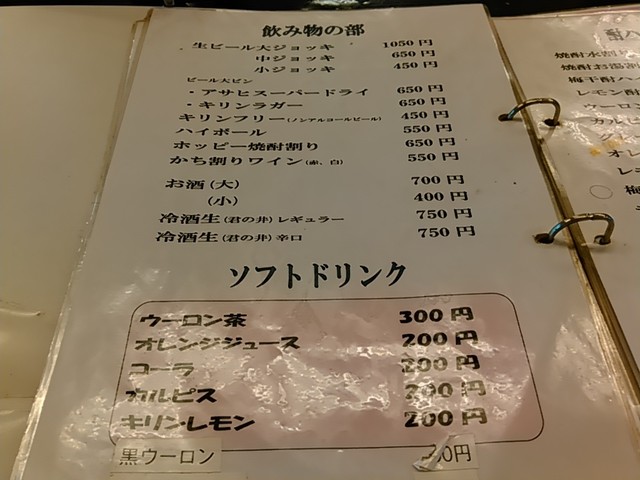 飲み物の部
生ビール大ジョッキ 1050円
中ジョッキ 650円
小ジョッキ 450円
ビール大ビン
・アサヒスーパードライ 650円
・キリンラガー 650円
キリンフリー(ノンアルコールビール) 450円
ハイボール 550円
ホッピー焼酎割り 650円
かち割りワイン(赤、白) 550円
お酒(大) 700円
(小) 400円
冷酒生(君の井)レギュラー 750円
冷酒生(君の井)辛口 750円
ソフトドリンク
ウーロン茶 300円
オレンジジュース 200円
コーラ 200円
カルピス 200円
キリンレモン 200円
黒ウーロン 円
焼酎水割
焼酎お湯割
梅干酎ハイ
レモン酎
ウーロ
カルピ
オレ
レモ
梅